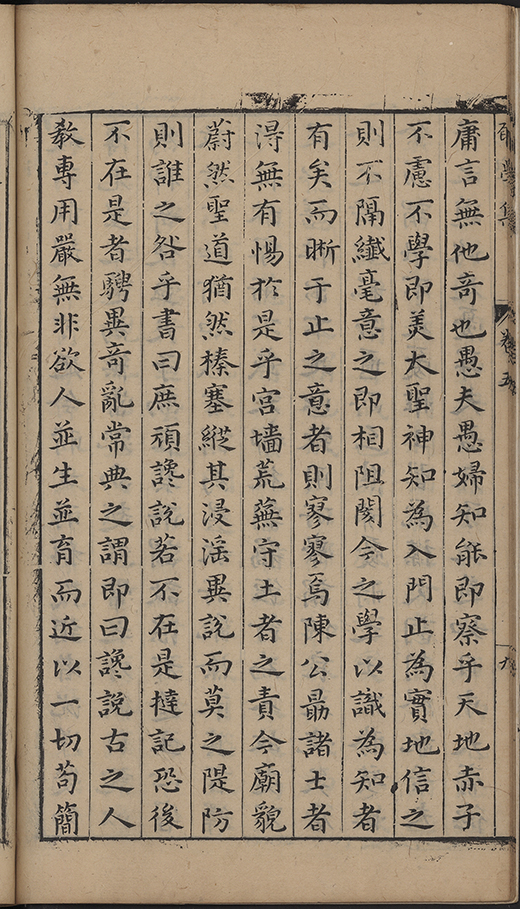 學集
卷五
九
庸言無他竒也愚夫愚婦知能即察乎天地赤子
不慮不學即美大聖神知為入門止為實地信之
則不隔纎毫意之即相阻閡今之學以識為知者
有矣而晰于止之意者則寥寥焉陳公勗諸士者
淂無有惕扵是乎宫墻荒蕪守土者之責今廟貌
蔚然聖道猶然榛塞縱其浸滛異說而莫之隄防
則誰之咎乎書曰庶頑讒說若不在是撻記恐後
不在是者騁異竒亂常典之謂即曰讒說古之人
教專用嚴無非欲人並生並育而近以一切苟簡